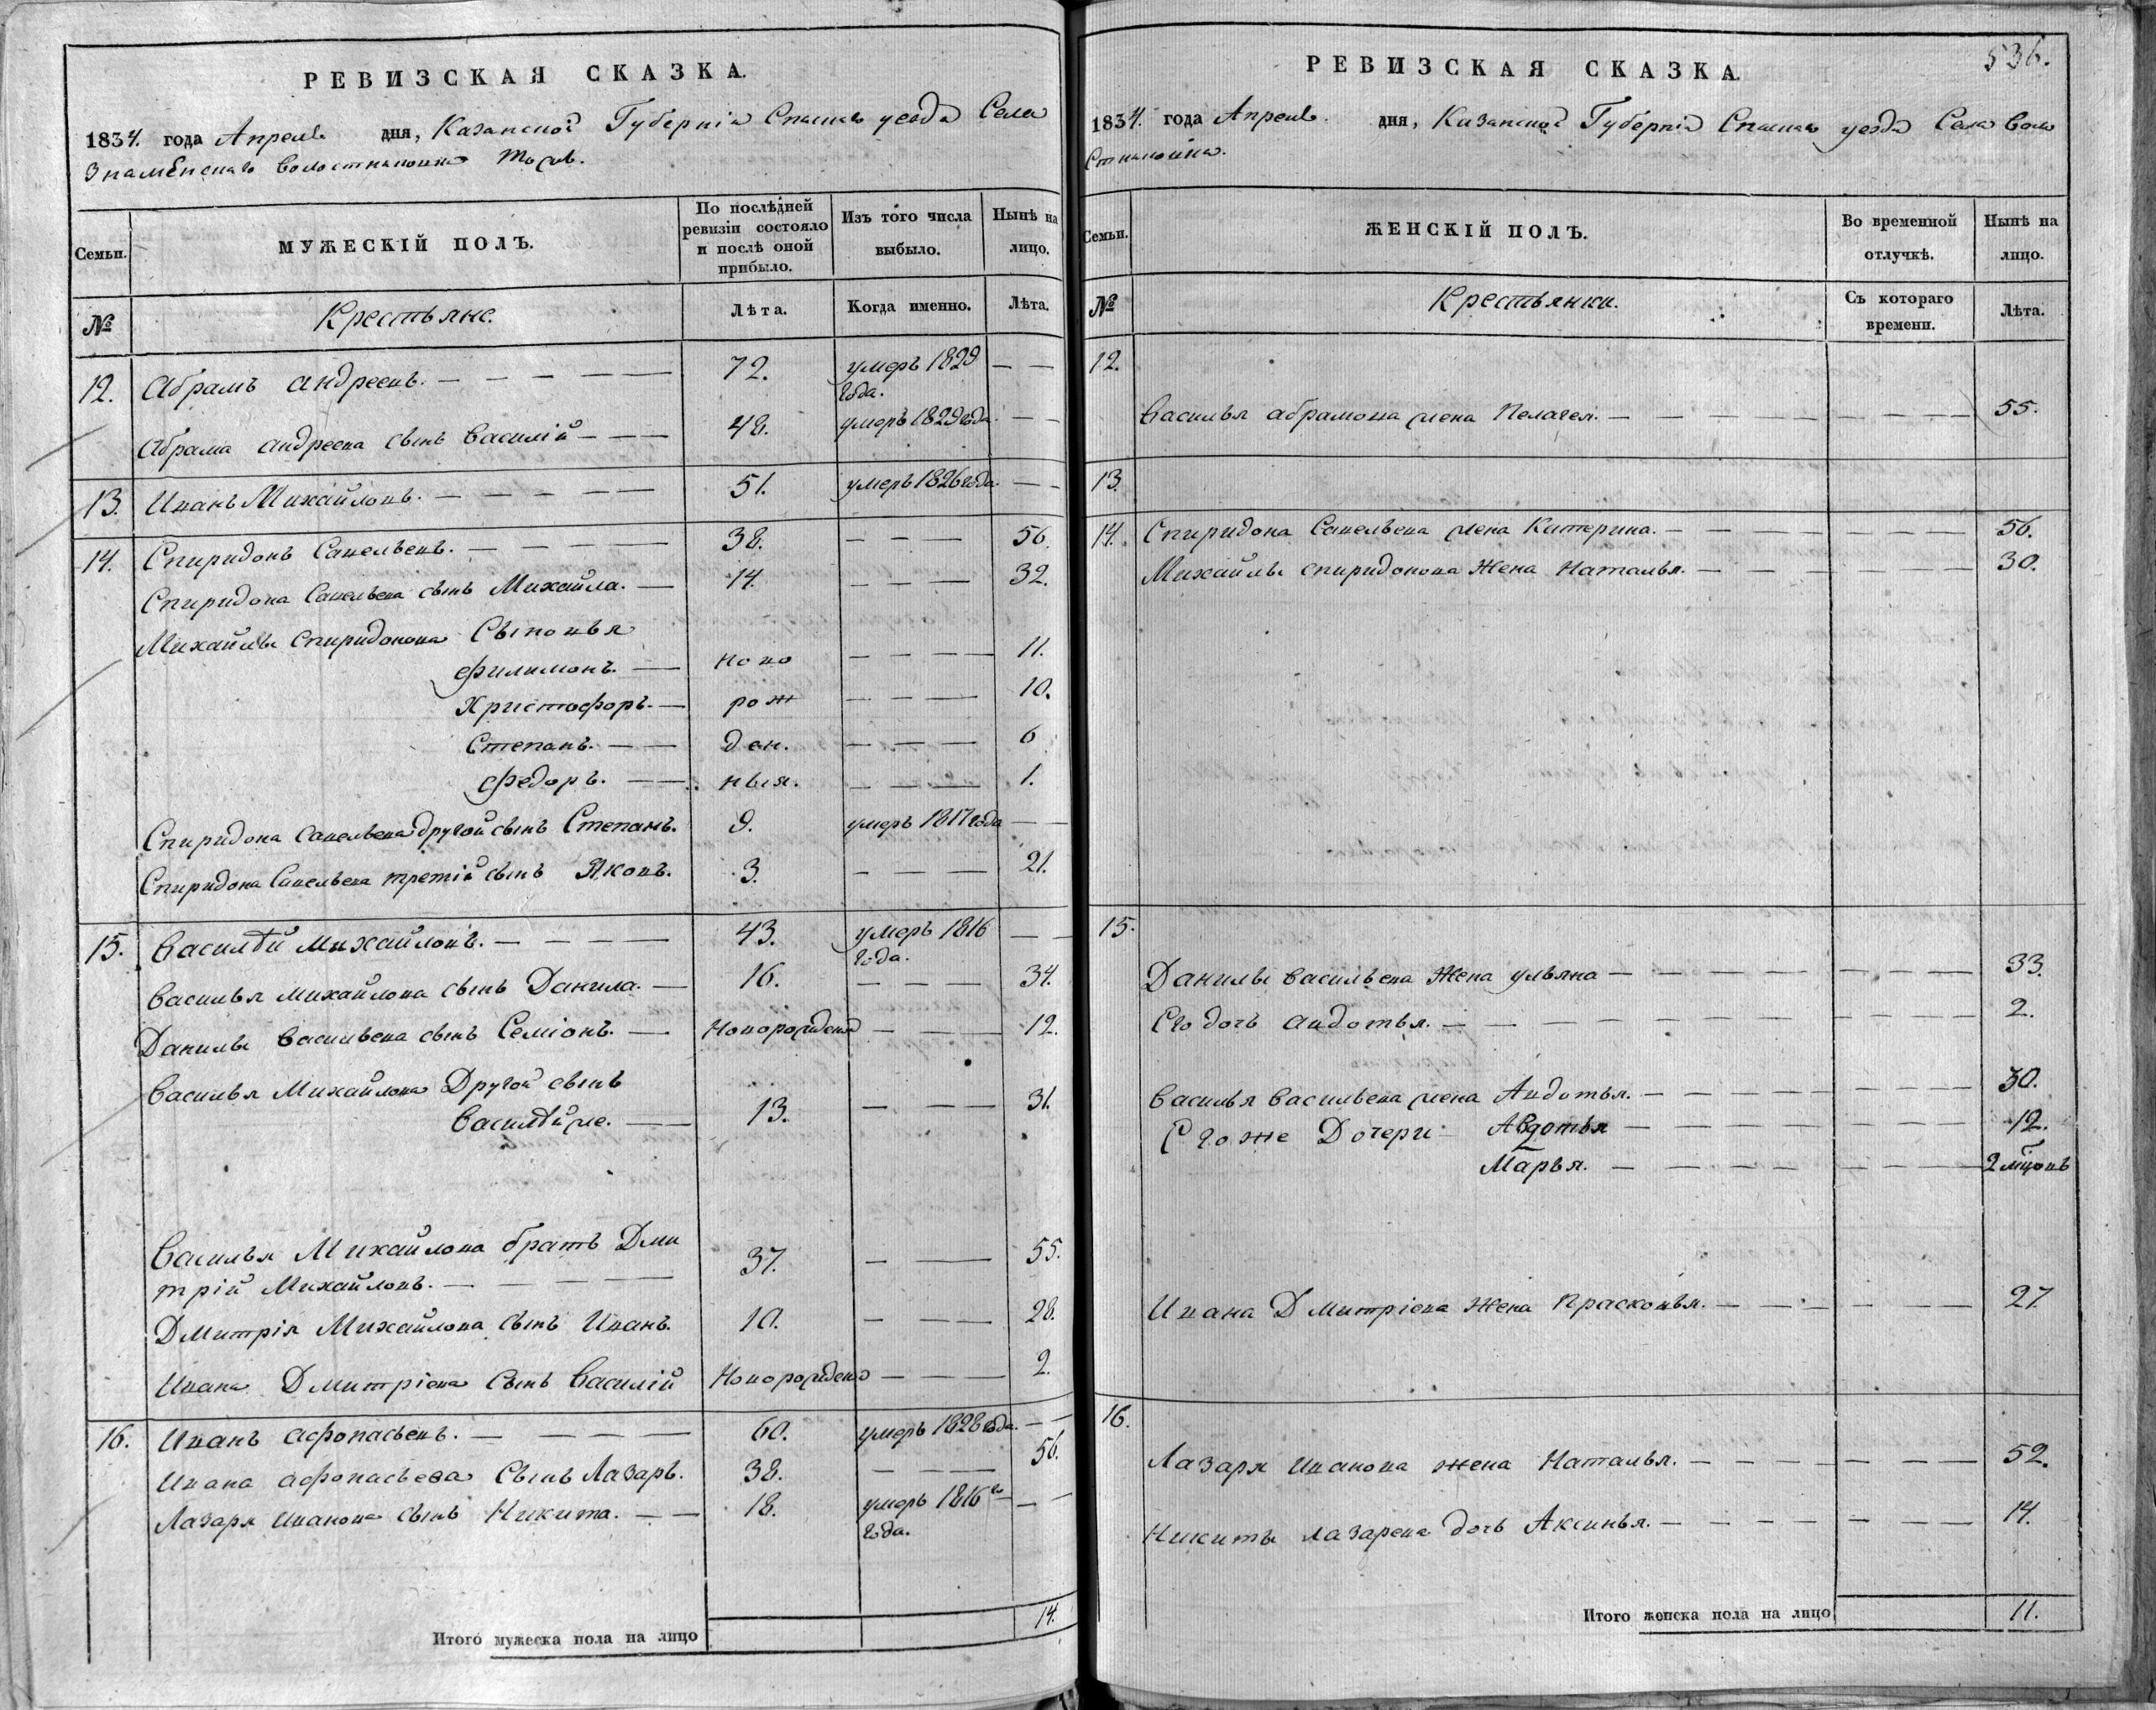 РЕВИЗСКАЯ СКАЗКА.
1834. года Апреля дня, Казанской Губерніи Спаскаго уезда Села
Знаменскаго Волостниковка тожъ.
Семьи. МУЖЕСКІЙ ПОЛЪ. По послѣдней ревизіи состояло и послѣ оной прибыло. Изъ того числа выбыло. Нынѣ на лицо.
№ Крестьяне. Лѣта. Когда именно. Лѣта.
12. Абрамъ Андреевъ. — — — — — 72. умеръ 1829 года. — —
Абрама Андреева сынъ Василій — — — 48. умеръ 1829 года. — —
13. Иванъ Михайловъ. — — — — — 51. умеръ 1826 года. — —
14. Спиридонъ Савельевъ. — — — — 38. — — — 56.
Спиридона Савельева сынъ Михайла. — 14. — — — 32.
Михайлы Спиридонова Сыновья
Филимонъ. — ново — — — — 11.
Христофоръ. — рож — — — 10.
Степанъ. — — ден. — — — 6
Федоръ. — — ныя. — — — 1.
Спиридона Савельева другой сынъ Степанъ. 9. умеръ 1817 года — —
Спиридона Савельева третій сынъ Яковъ. 3. — — — 21.
15. Василѣй Михайловъ. — — — — 43. умеръ 1816 года. — —
Василья Михайлова сынъ Данила. — 16. — — — 34.
Данилы Васильева сынъ Семіонъ. — Новорожденъ — — — 12.
Василья Михайлова Другой сынъ
Василѣй же. — 13. — — — 31.
Василья Михайлова братъ Дми
трій Михайловъ. — — — — 37. — — 55.
Дмитрія Михайлова Сынъ Иванъ. 10. — — — 28.
Ивана Дмитріева Сынъ Василій Новорожденъ — — — 2.
16. Иванъ Афонасьевъ. — — — — 60. умеръ 1828 года. — —
Ивана Афонасьева Сынъ Лазарь. 38. — — — 56.
Лазаря Иванова сынъ Никита. — — 18. умеръ 1816го года. — —
Итого мужеска пола на лицо 14.
536.
РЕВИЗСКАЯ СКАЗКА.
1834. года Апреля. дня, Казанской Губерніи Спаскаго уезда Села Воло
стниковка.
Семьи. ЖЕНСКІЙ ПОЛЪ. Во временной отлучкѣ. Нынѣ на лицо.
№ Крестьянки. Съ котораго времени. Лѣта.
12.
Василья Абрамова жена Пелагея. — — — — — — 55.
13.
14. Спиридона Савельева жена Катерина. — — — — — — 56.
Михайлы Спиридонова Жена Наталья. — — — — — — 30.
15.
Данилы Васильева Жена Ульяна — — — — — — 33.
Его дочь Авдотья. — — — — — — 2.
Василья Васильева жена Авдотья. — — — — — — 30.
Его же Дочери Авдотья — — — — — — 12.
Марья. — — — — — — 2 мѣцовъ
Ивана Дмитріева Жена Прасковья. — — — — — — 27.
16.
Лазаря Иванова жена Наталья. — — — — — — 52.
Никиты Лазарева дочь Аксинья. — — — — — — 14.
Итого женска пола на лицо 11.